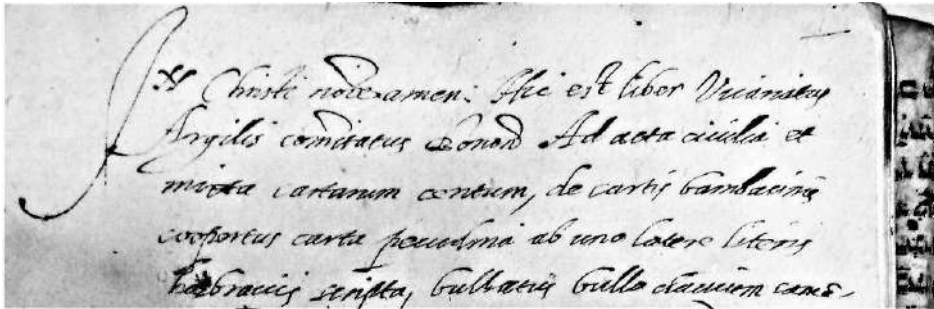 In Christi no(m)i(n)e amen: Hic est liber Vicariatus
Argilis comitatus Bonon Ad acta civilia et
mixta cartarum centum, de cartis bambacinis
coopertus carta pecudina ab uno latere literis
hebraicis scripta, bullatus bulla clavium came-